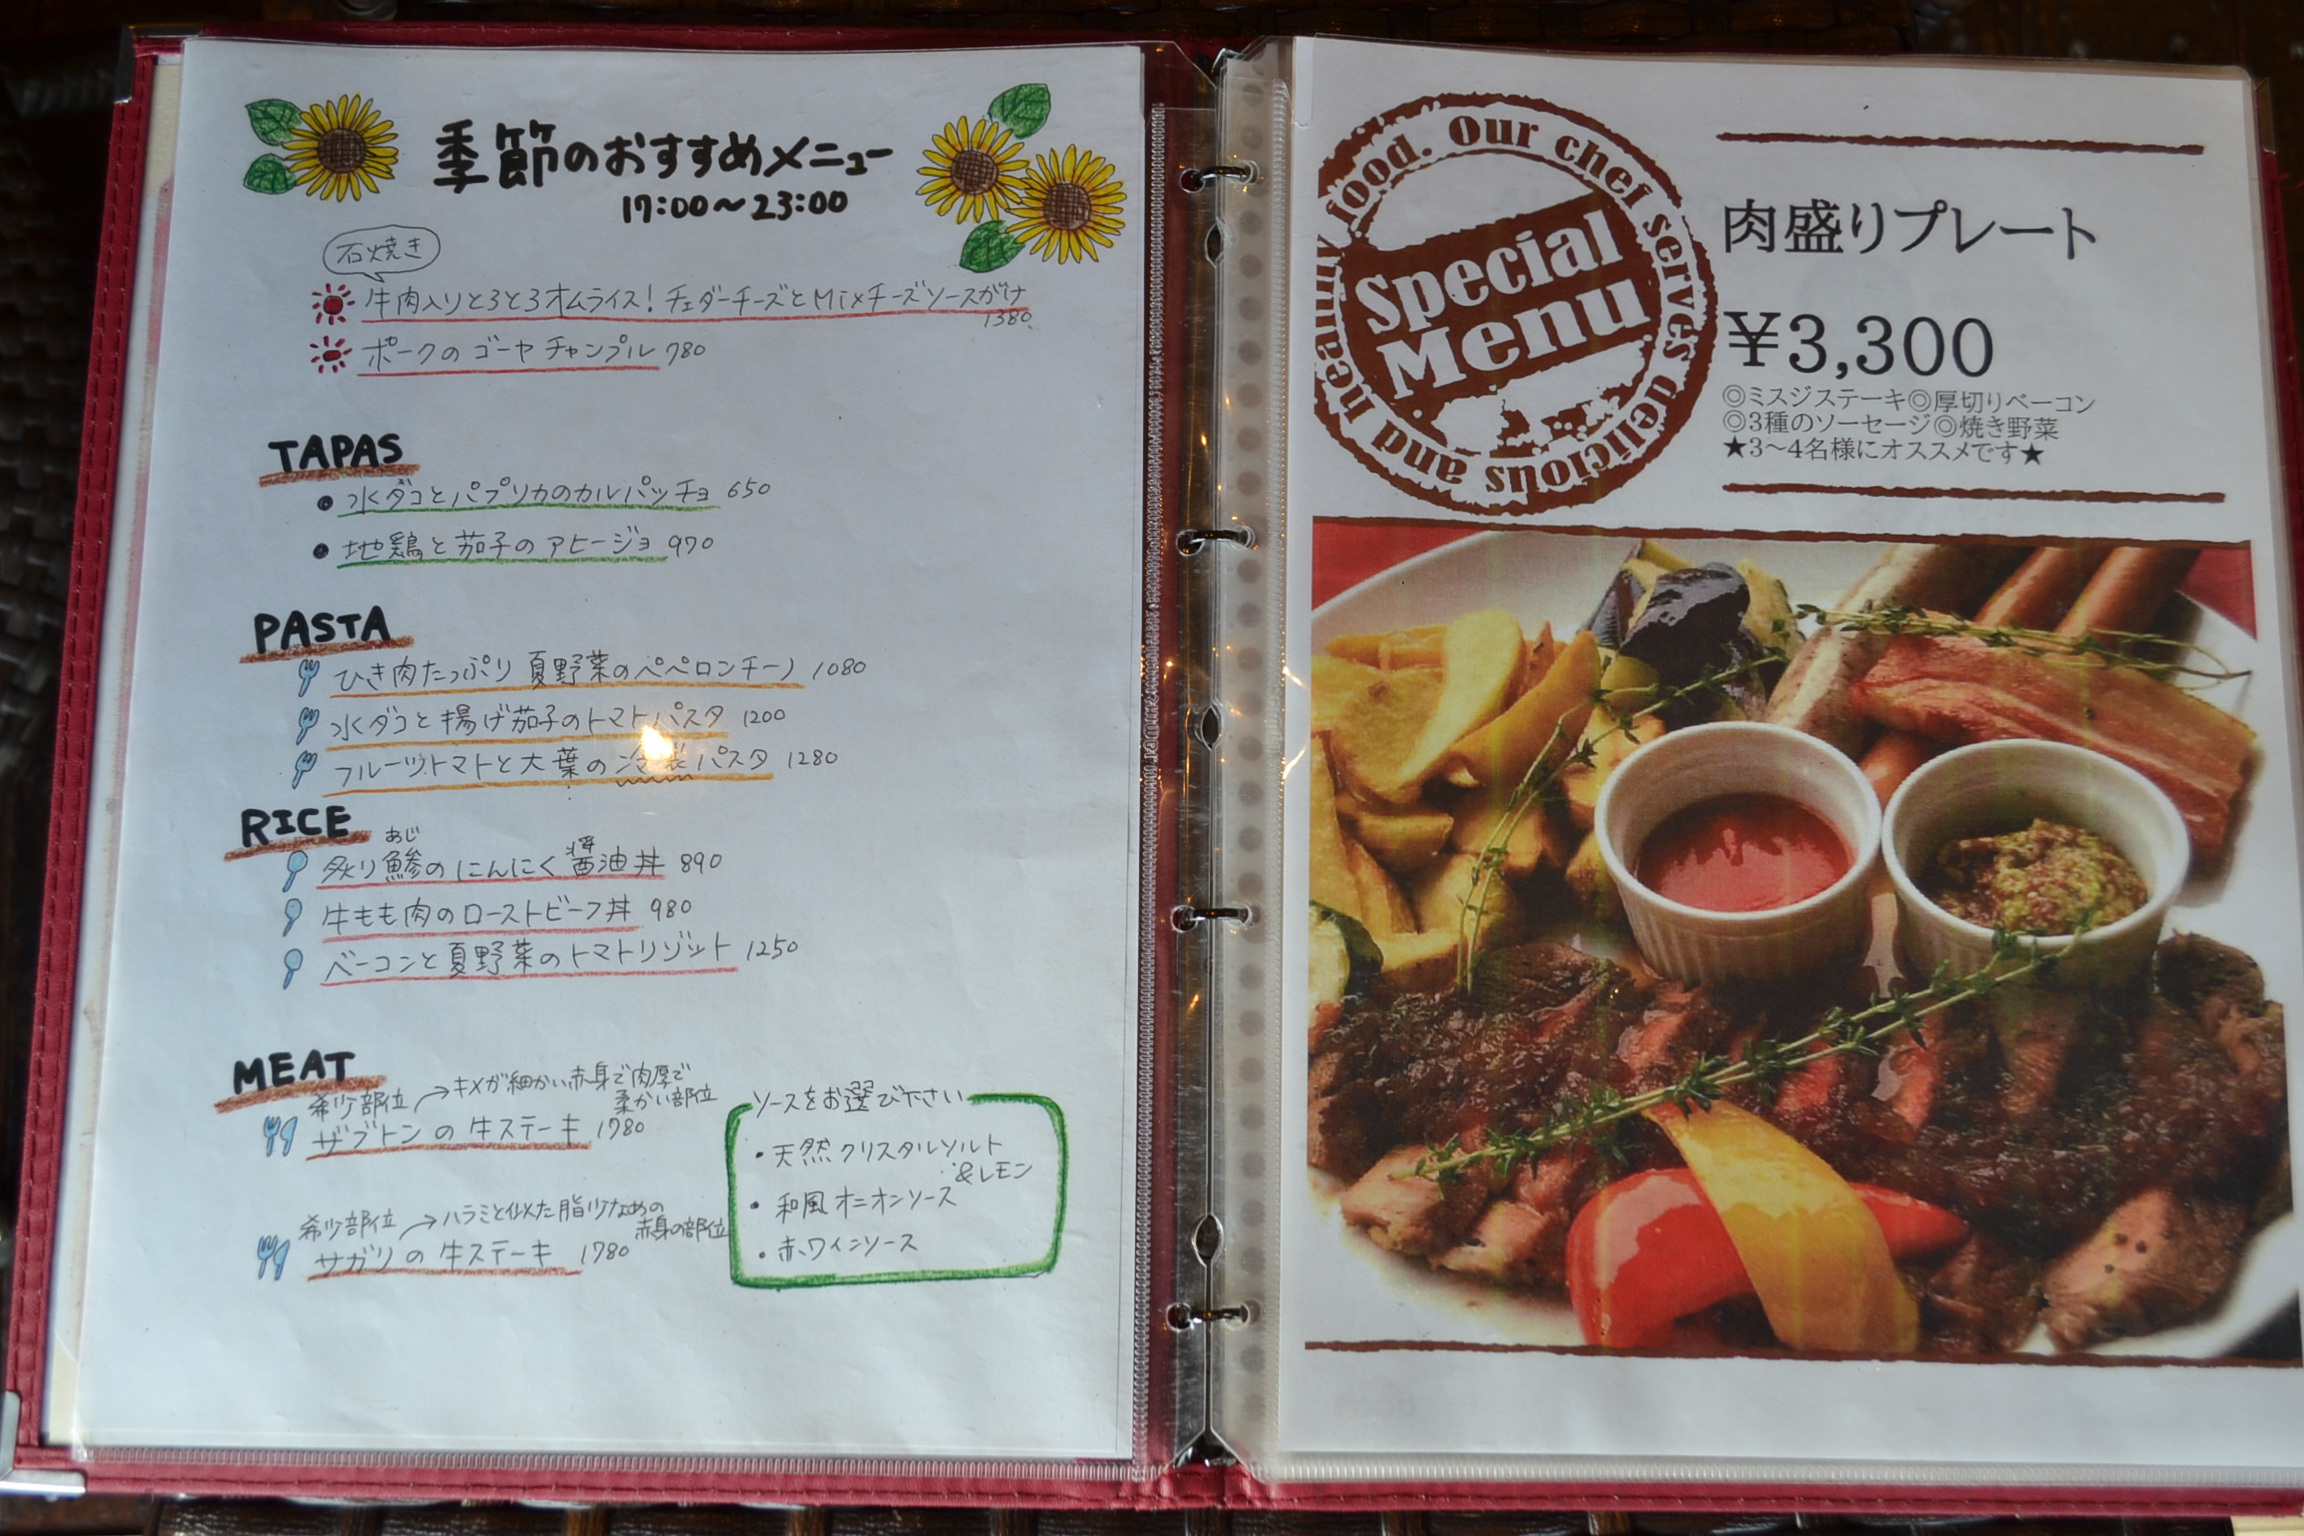 季節のおすすめメニュー
17:00〜23:00
石焼き
牛肉入りとろとろオムライス!チェダーチーズとMixチーズソースがけ
1380
ポークのゴーヤチャンプル 780
TAPAS
• 水ダコとパプリカのカルパッチョ 650
• 地鶏と茄子のアヒージョ 970
PASTA
ひき肉たっぷり 夏野菜のペペロンチーノ 1080
水ダコと揚げ茄子のトマトパスタ 1200
フルーツトマトと大葉の冷製パスタ 1280
RICE
あじ
炙り鯵のにんにく醤油丼 890
牛もも肉のローストビーフ丼 980
ベーコンと夏野菜のトマトリゾット 1250
MEAT
希少部位→キメが細かい赤身で肉厚で
柔かい部位
ザブトンの牛ステーキ 1780
希少部位→ハラミと似た脂少なめの
赤身の部位
サガリの牛ステーキ 1780
ソースをお選び下さい
• 天然クリスタルソルト
&レモン
• 和風オニオンソース
• 赤ワインソース
food. Our chef serves delicious and healthy
Special
Menu
肉盛りプレート
¥3,300
◎ミスジステーキ◎厚切りベーコン
◎3種のソーセージ◎焼き野菜
★3〜4名様にオススメです★